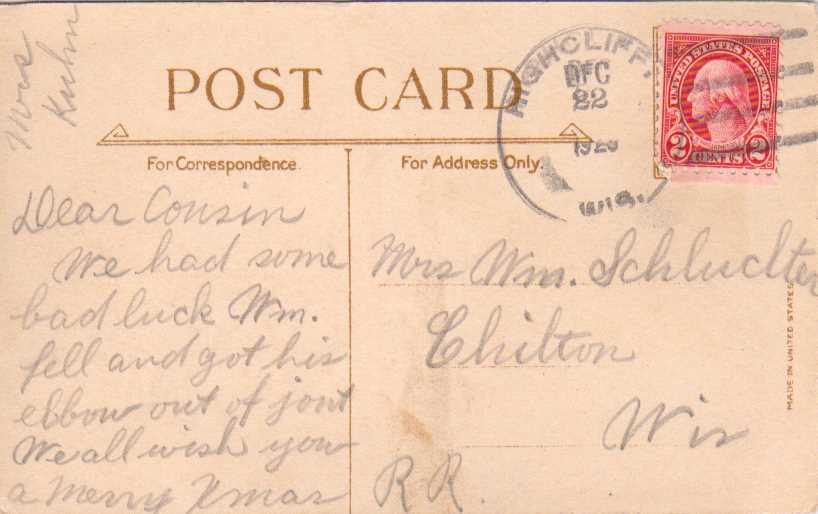 Mrs
Kuhn
POST CARD
For Correspondence
For Address Only.
HIGHCLIFF,
DEC
22
WIS.
UNITED STATES POSTAGE
2 CENTS 2
Dear Cousin
We had some
bad luck Wm.
fell and got his
elbow out of jont
We all wish you
a Merry Xmas
Mrs Wm. Schluchter
Chilton
Wis
R R.
MADE IN UNITED STATES